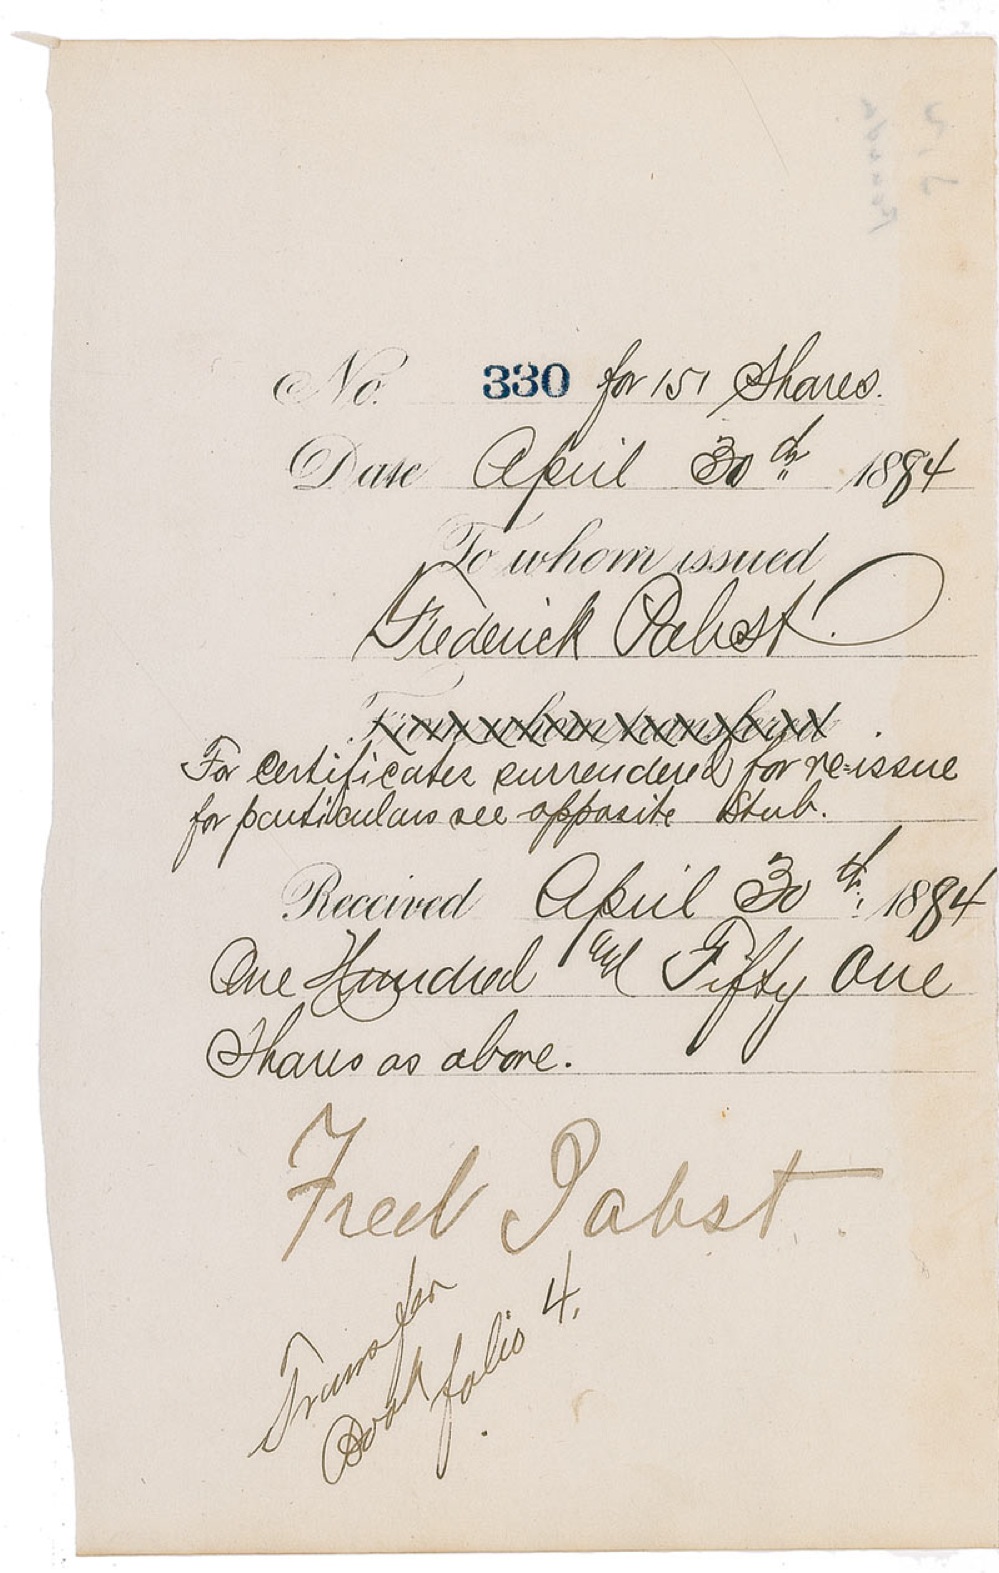 No. 330 for 151 Shares.
Date April 30th 1884
To whom issued
Frederick Pabst.
From whom transfered
For certificates surrendered for re=issue
for particulars see opposite Stub.
Received April 30th, 1884
One Hundred and Fifty One
Shares as above.
Fred Pabst.
Transfer
Book folio 4.